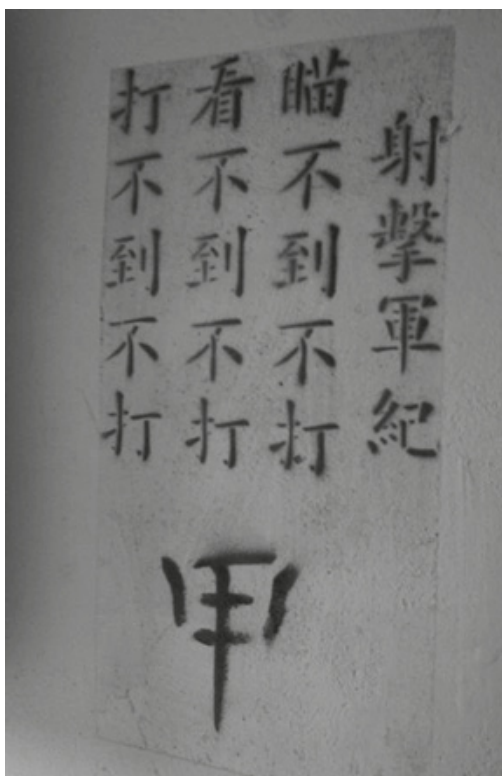 射擊軍紀
瞄不到不打
看不到不打
打不到不打
甲